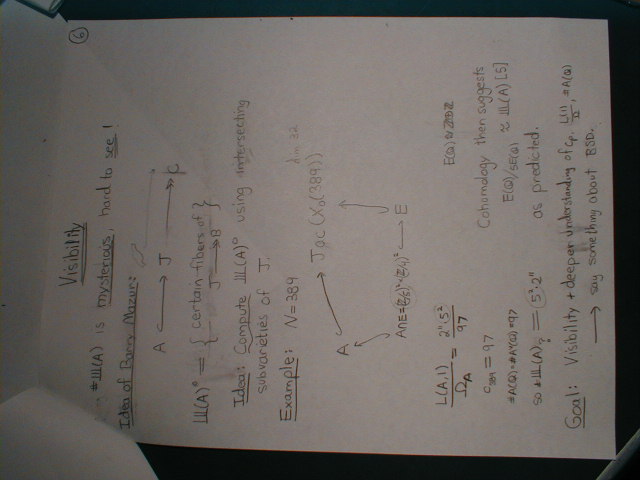 6
Visibility
#Ш(A) is mysterious, hard to see!
Idea of Barry Mazur:
A ↪ J → C
Ш(A)° = { certain fibers of J → B }
Idea: Compute Ш(A)° using intersecting
subvarieties of J.
Example: N=389
A → Jac(X₀(389))
A∩E = ← E
L(A,1)/Ω_A = 2¹¹·5²/97
E(Q) ≈
c₃₈₉ = 97
Cohomology then suggests
#A(Q)=#A^v(Q)=97
E(Q)/5E(Q) ≈ Ш(A)[5]
so #Ш(A)? = 5²·2¹¹
as predicted.
Goal: Visibility + deeper understanding of Cp, L(1)/Ω, #A(Q)
→ say something about BSD.